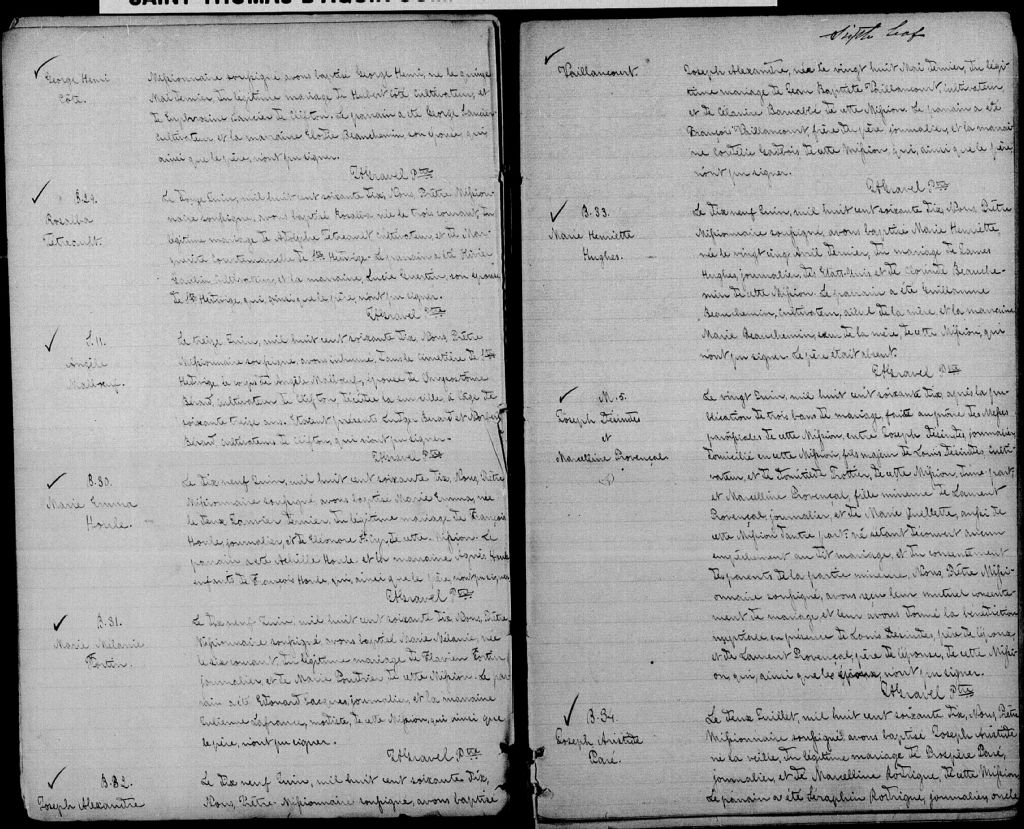 SAINT THOMAS D'AQUIN COM
George Henri
Côté.
Missionnaire soussigné avons baptisé George Henri, né le quinze
Mai dernier, du légitime mariage de Hubert Côté cultivateur, et
de Euphrosine Lancier de Clifton. Le parrain a été George Lancier
cultivateur et la marraine Elodie Beauchemin son épouse, qui
ainsi que le père, n'ont pu signer.
EHGravel Ptre
B. 29.
Rosalba
Tétreault.
Le douze Juin, mil huit cent soixante dix, Nous, Prêtre Mission-
naire soussigné, avons baptisé Rosalba née le trois courant, du
légitime mariage de Adolphe Tétreault cultivateur, et de Mar-
guerite Courtemanche de Ste Hedwige. Le parrain a été
cultivateur et la marraine, Lucie son épouse
de Ste Hedwige, qui, ainsi que le père, n'ont pu signer.
EHGravel Ptre
S. 11.
Angèle
Malboeuf.
Le treize Juin, mil huit cent soixante dix, Nous, Prêtre
Missionnaire soussigné, avons inhumé, dans le cimetière de Ste
Hedwige le corps de Angèle Malboeuf, épouse de Chrysostôme
Bérard, cultivateur de Clifton, décédée la surveille à l'âge de
soixante treize ans. Etaient présents Bérard et
Bérard, cultivateurs de Clifton, qui n'ont pu signer.
EHGravel Ptre
B. 30.
Marie Emma
Houle.
Le dix neuf Juin, mil huit cent soixante dix, Nous, Prêtre
Missionnaire soussigné, avons baptisé Marie Emma, née
le deux Janvier dernier, du légitime mariage de François
Houle journalier, et de Eléonore de cette Mission. Le
parrain a été Achille Houle et la marraine Houle
enfants de François Houle qui, ainsi que le père n'ont pu signer
EHGravel Ptre
B. 31.
Marie Mélanie
Fortin.
Le dix neuf Juin, mil huit cent soixante dix Nous, Prêtre
Missionnaire soussigné avons baptisé Marie Mélanie, née
le six courant du légitime mariage de Flavien Fortin,
journalier, et de Marie Poudrier de cette Mission. Le par-
rain a été Edouard Jacques, journalier, et la marraine
Lafrance, modiste, de cette Mission, qui ainsi que
le père, n'ont pu signer.
EHGravel Ptre
B. 32.
Joseph Alexandre
Le dix neuf Juin, mil huit cent soixante dix,
Nous, Prêtre Missionnaire soussigné, avons baptisé
Sixth Leaf
Vaillancourt.
Joseph Alexandre, né le vingt huit Mai dernier, du légi-
time mariage de Jean Baptiste Vaillancourt, cultivateur,
et de de cette Mission. Le parrain a été
François Vaillancourt, frère du père, journalier, et la marrai-
ne de cette Mission, qui, ainsi que le père,
n'ont pu signer.
EHGravel Ptre
B. 33.
Marie Henriette
Hughes.
Le dix neuf Juin, mil huit cent soixante dix, Nous Prêtre
Missionnaire soussigné, avons baptisé Marie Henriette,
née le vingt cinq Avril dernier, du mariage de James
Hughes, journalier, des Etats-Unis et de Beauche-
min de cette Mission. Le parrain a été Guillaume
Beauchemin, cultivateur, aïeul de la mère, et la marraine
Marie Beauchemin, soeur de la mère, de cette Mission, qui
n'ont pu signer. Le père était absent.
EHGravel Ptre
M. 5.
Joseph Désindes
et
Marcelline Provençal.
Le vingt Juin, mil huit cent soixante dix, après la pu-
blication de trois bans de mariage, faite au prône des Messes
paroissiales de cette Mission, entre Joseph Désindes, journalier,
domicilié en cette Mission, fils majeur de Louis Désindes, culti-
vateur, et de Domitilde Trottier, de cette Mission, d'une part,
et Marcelline Provençal, fille mineure de Laurent
Provençal, journalier, et de Marie Ouellette, aussi de
cette Mission d'autre part; ne s'étant découvert aucun
empêchement au dit mariage, et du consentement
de parents de la partie mineure, Nous, Prêtre Missi-
onnaire soussigné, avons reçu leur mutuel consente-
ment de mariage et leur avons donné la bénédiction
nuptiale en présence de Louis Désindes, père de l'époux
et de Laurent Provençal, père de l'épouse, de cette Missi-
on qui, ainsi que les époux, n'ont pu signer.
EHGravel Ptre
B. 34.
Joseph Aristide
Paré.
Le deux Juillet, mil huit cent soixante dix, Nous, Prêtre
Missionnaire soussigné, avons baptisé Joseph Aristide
né la veille, du légitime mariage de Prospère Paré,
journalier, et de Marcelline Rodrigue, de cette Mission
Le parrain a été Séraphin Rodrigue, journalier, oncle